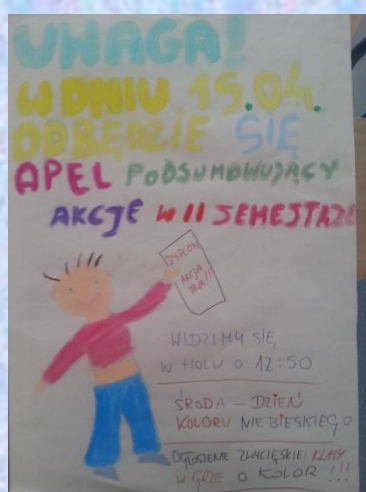 UWAGA!
W DNIU 15.04.
ODBĘDZIE SIĘ
APEL PODSUMOWUJĄCY
AKCJE W II SEMESTRZE
DYPLOM
AKCJA
WIDZIMY SIĘ
W HOLU O 12:50
ŚRODA - DZIEŃ
KOLORU NIEBIESKIEGO
OGŁOSZENIE ZWYCIĘSKIEJ KLASY
W GRZE O KOLOR !!!